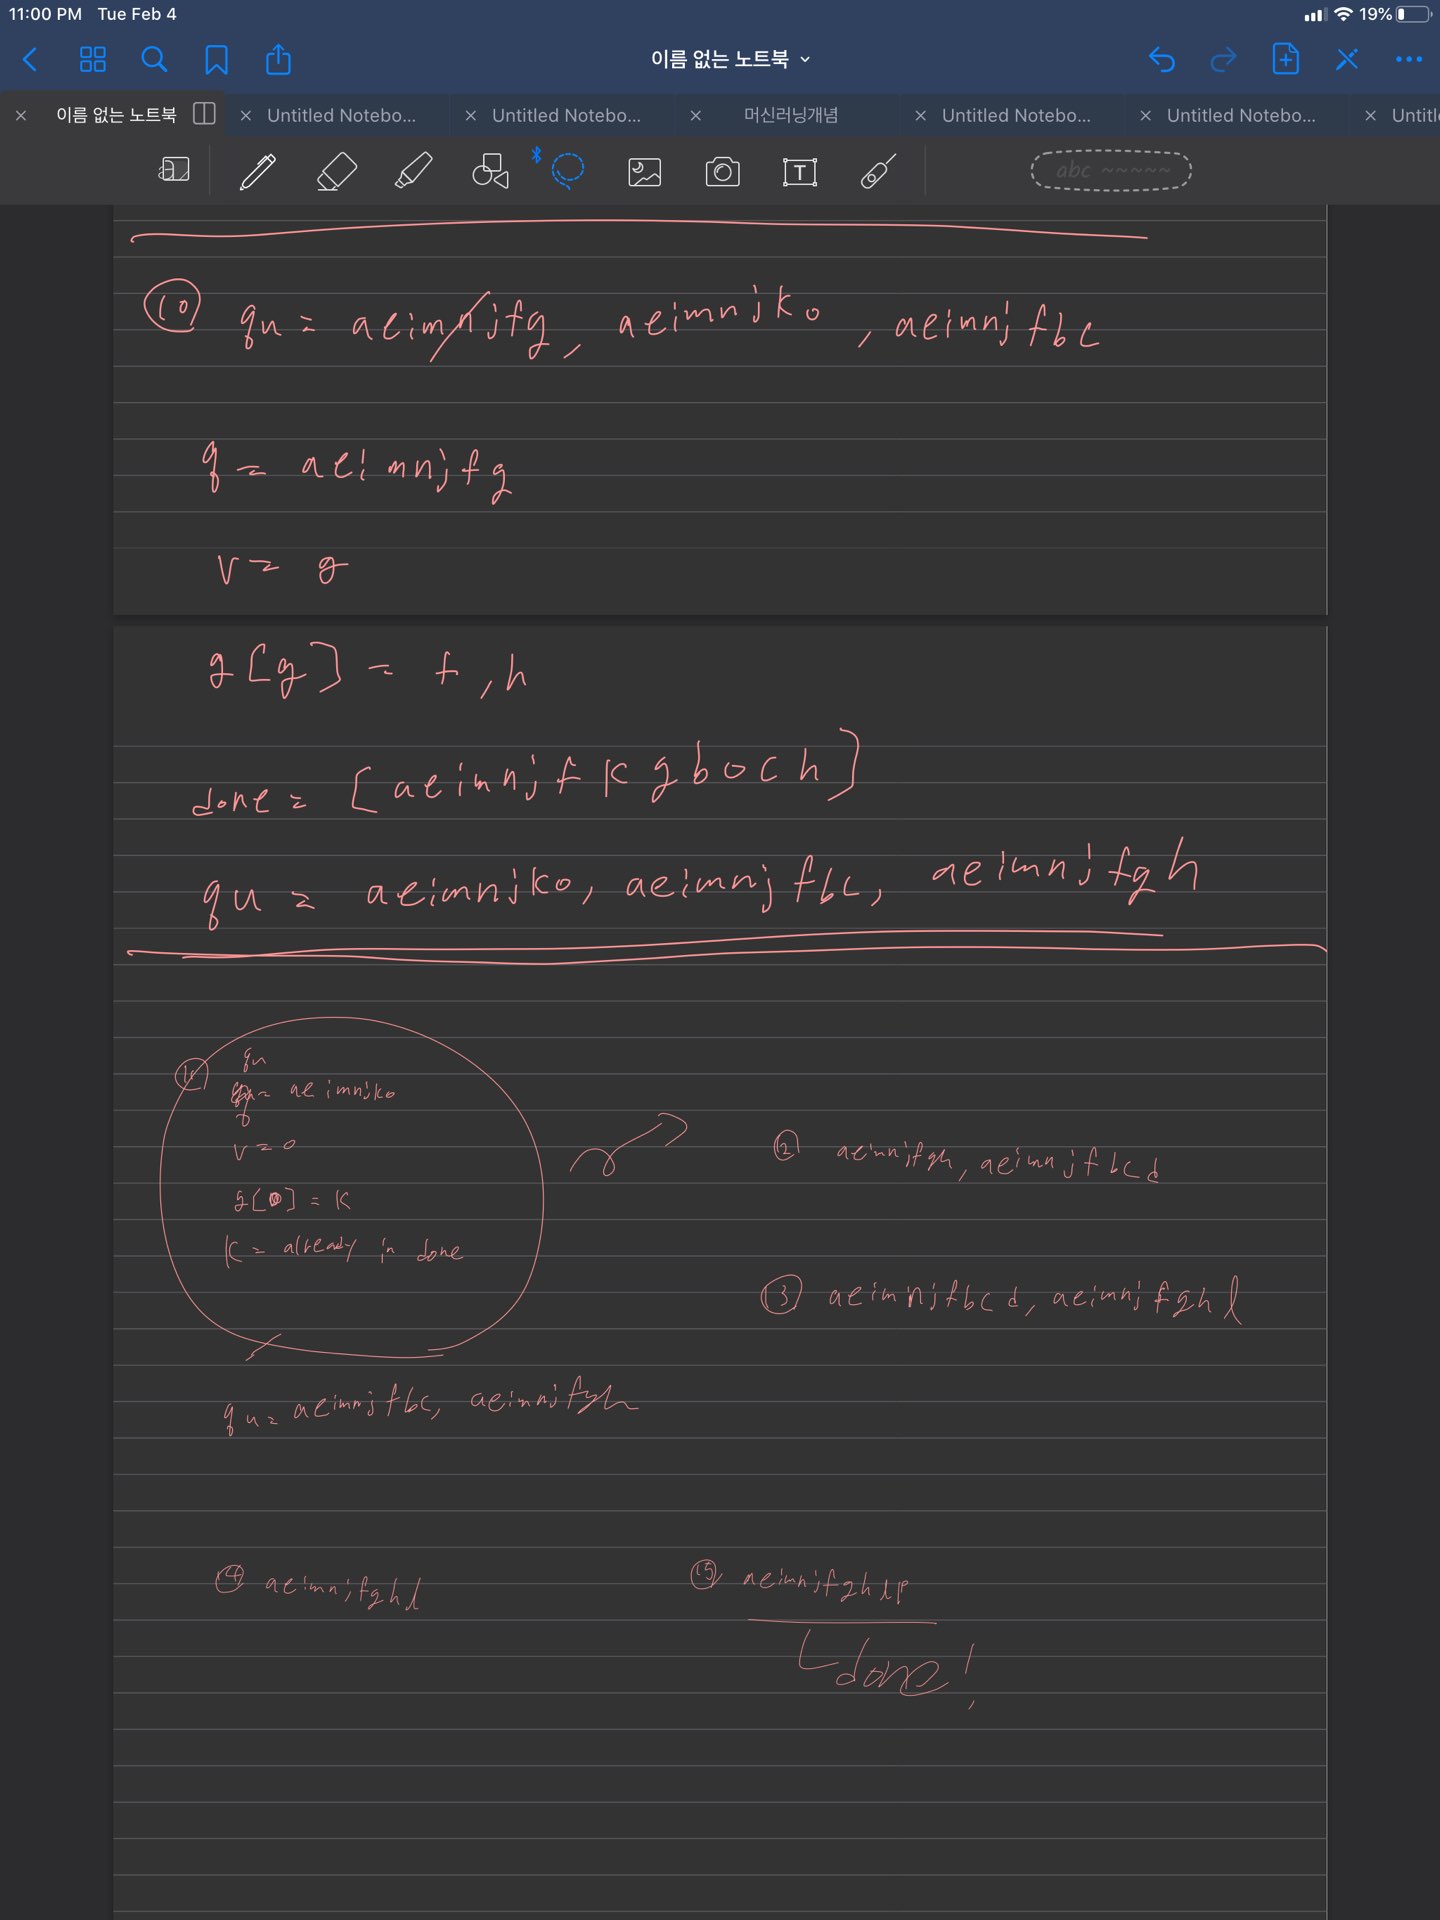 11:00 PM Tue Feb 4 19%
이름 없는 노트북
이름 없는 노트북 Untitled Notebo... Untitled Notebo... 머신러닝개념 Untitled Notebo... Untitled Notebo... Untitl
T abc ~~~~~
10 qu = aeimnjfg, aeimnjko, aeimnjfbc
q = aeimnjfg
v = g
g[g] = f, h
done = [aeimnjfkgboch]
qu = aeimnjko, aeimnjfbc, aeimnjfgh
qu
11 q = aeimnjko
v = o
g[o] = k
k = already in done
12 aeimnjfgh, aeimnjfbcd
13 aeimnjfbcd, aeimnjfghl
qu = aeimnjfbc, aeimnjfgh
14 aeimnjfghl
15 aeimnjfghlp
done!